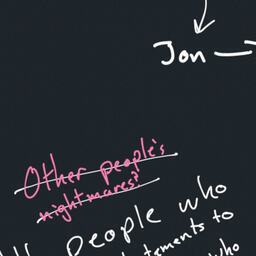 Jon
Other people's
nightmares?
People who
to
who